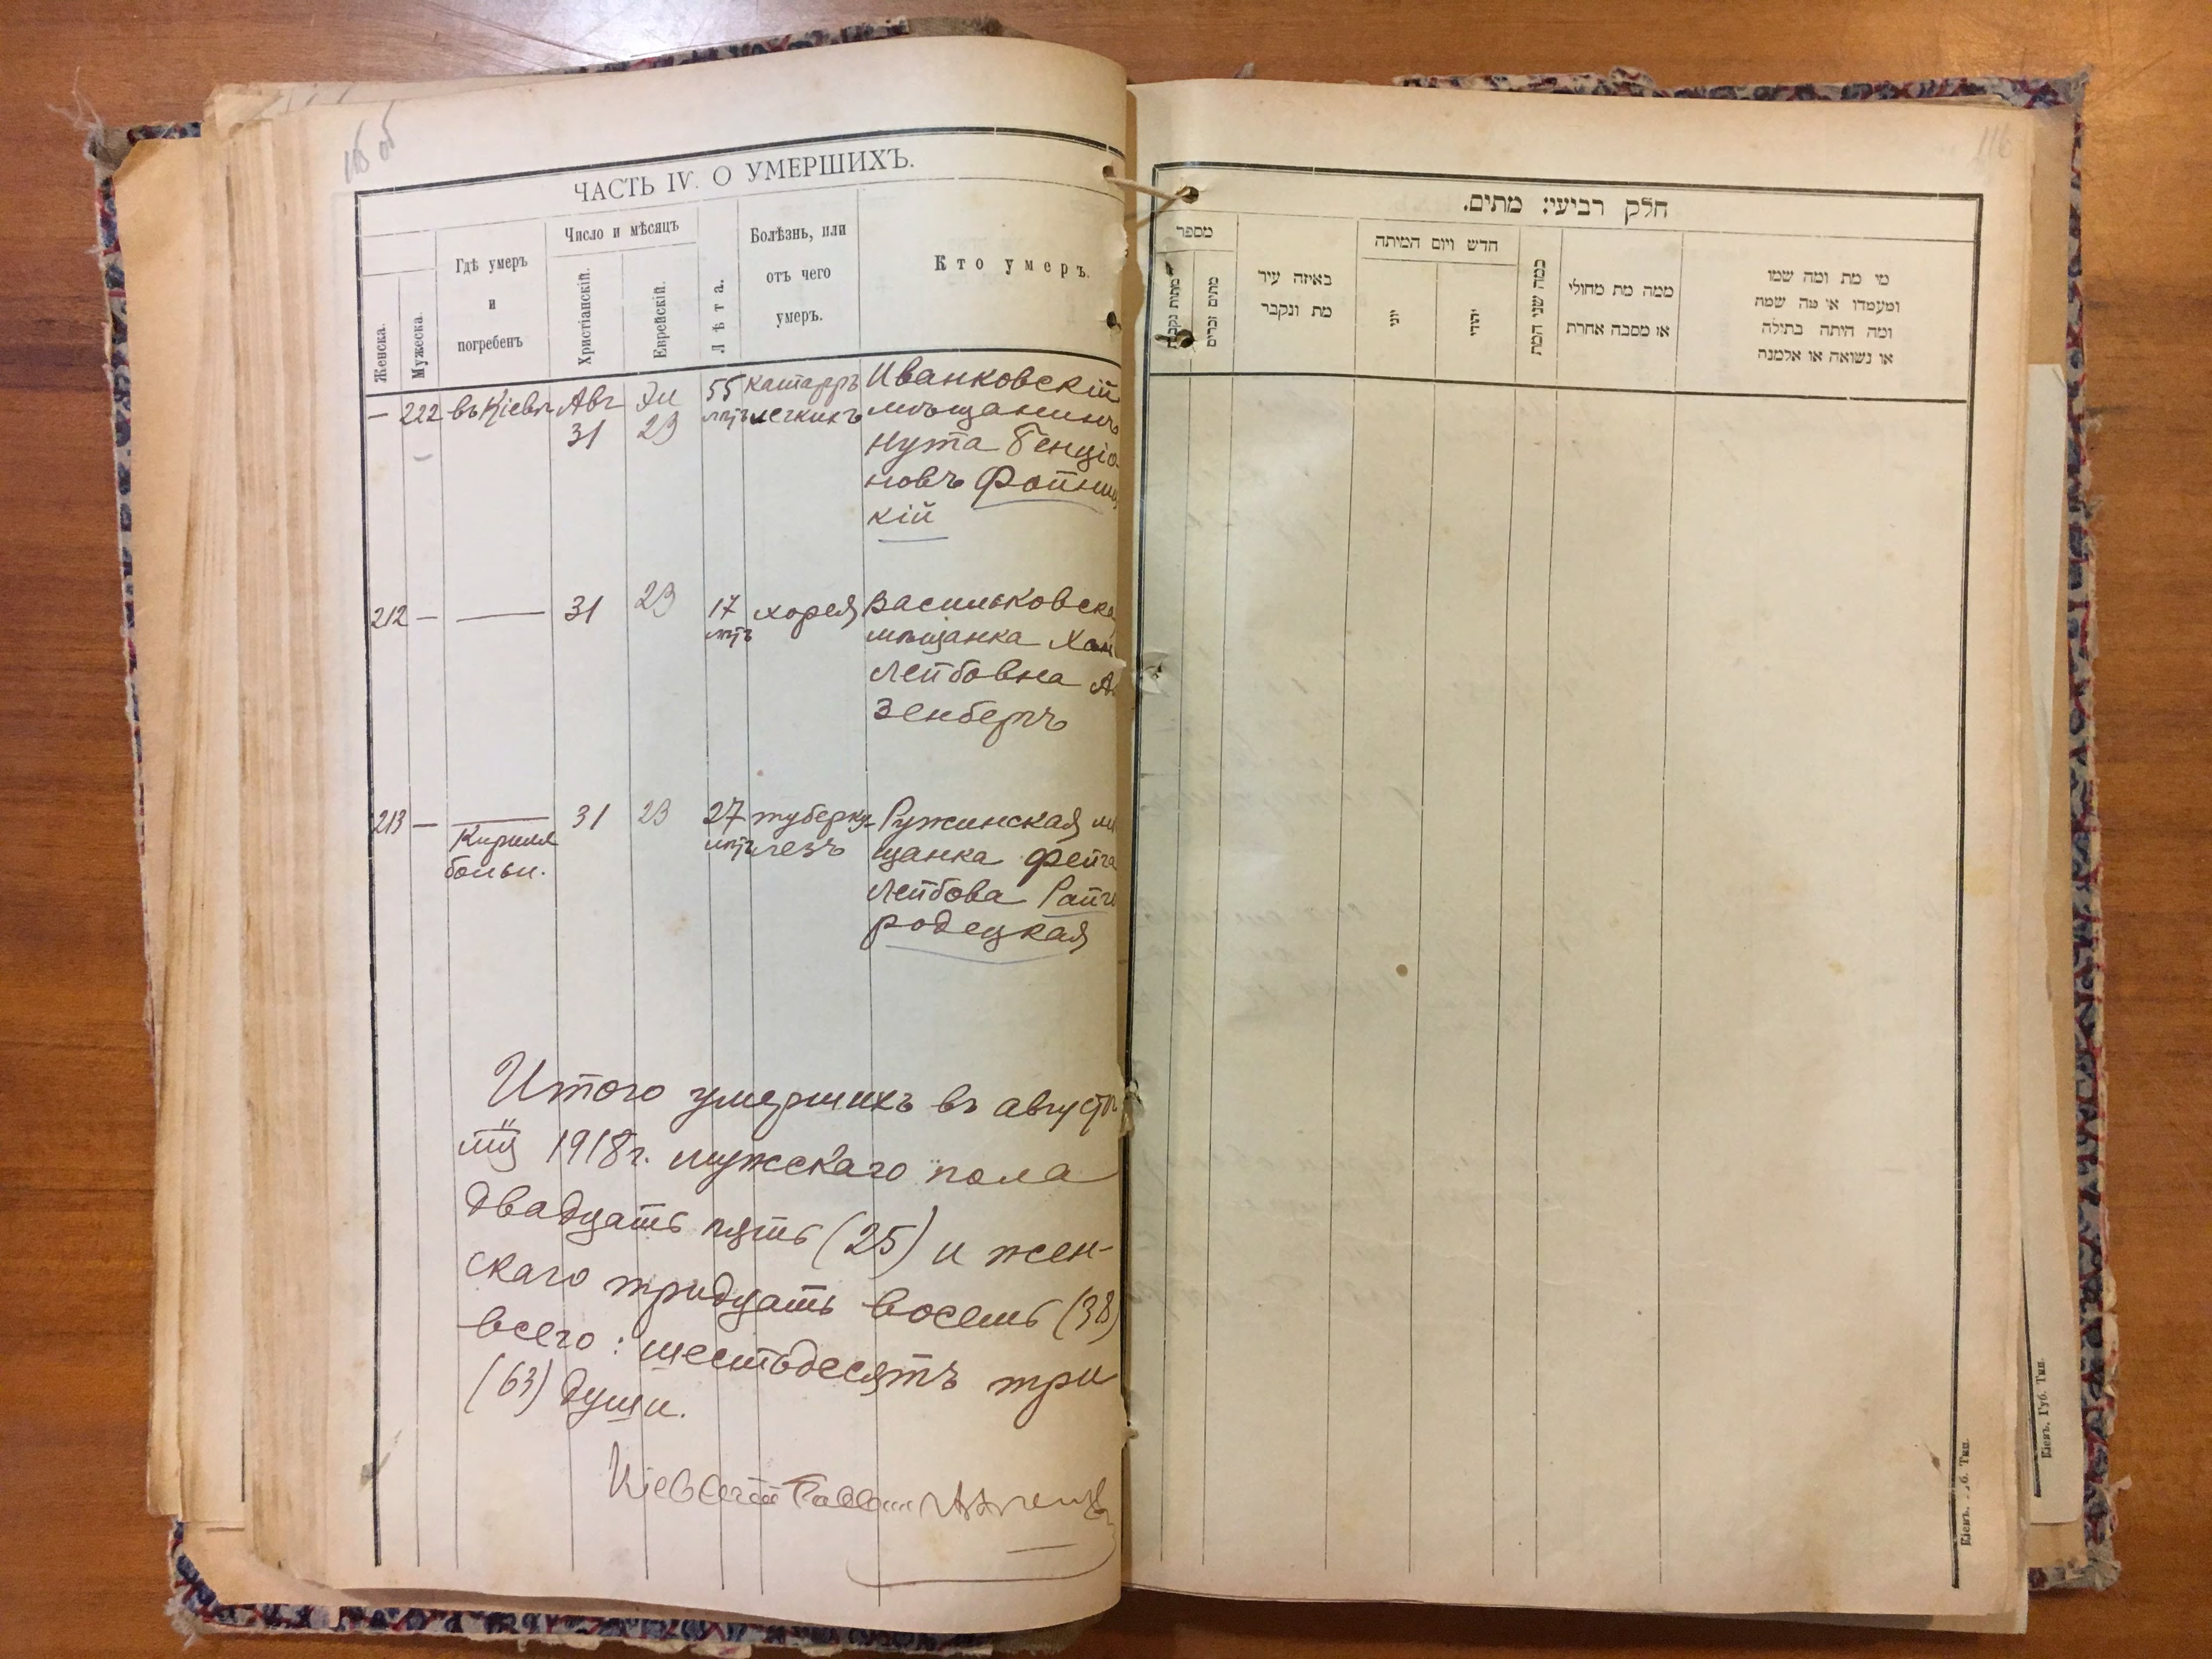 115 об
ЧАСТЬ IV. О УМЕРШИХЪ.
Женска.
Мужеска.
Гдѣ умеръ
и
погребенъ
Число и мѣсяцъ
Христіанскій.
Еврейскій.
Лѣта.
Болѣзнь, или
отъ чего
умеръ.
Кто умеръ.
— 222 въ Кіевѣ Авг 31 Эл 23 55 лѣтъ катарръ легкихъ
Иванковскій
мѣщанинъ
Нута Бенціо
новъ
кій
212 — — 31 23 17 лѣтъ хорея
Васильковска
мѣщанка Хан
Лейбовна А
зенбергъ
213 — — 31 23 27 лѣтъ туберку-
лезъ
Кирилл
больн.
Ружинская мѣ
щанка Фейга
Лейбова Райго
родецкая
Итого умершихъ въ августѣ
мц 1918 г. мужскаго пола
двадцать пять (25) и жен-
скаго тридцать восемь (38)
всего: шестьдесятъ три
(63) души.
Кіевскій Раввин
116
חלק רביעי: מתים.
מספר
מתות נקבות
מתים זכרים
באיזה עיר
מת ונקבר
חדש ויום המיתה
יוני
יהודי
כמה שני המת
ממה מת מחולי
או מסבה אחרת
מי מת ומה שמו
ומעמדו או מה שמה
ומה היתה בתילה
או נשואה או אלמנה
Кіевъ. Губ. Тип.
Кіевъ. Губ. Тип.